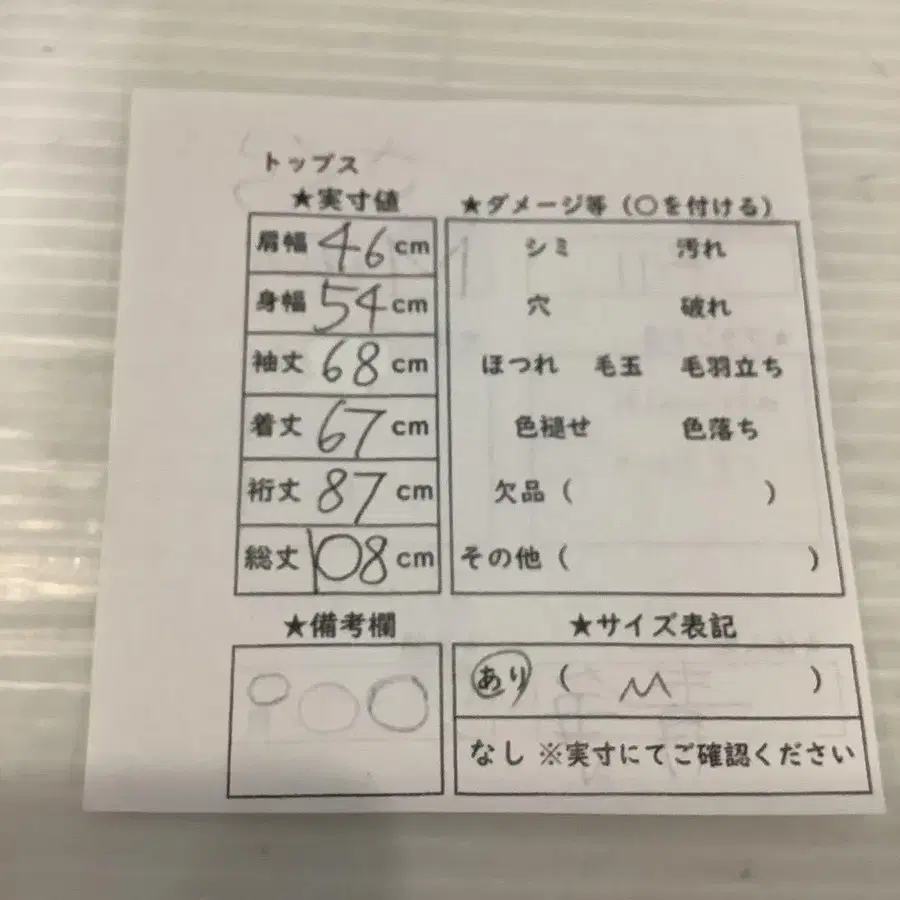 トップス
★実寸値
肩幅 46 cm
身幅 54 cm
袖丈 68 cm
着丈 67 cm
裄丈 87 cm
総丈 108 cm
★ダメージ等（〇を付ける）
シミ 汚れ
穴 破れ
ほつれ 毛玉 毛羽立ち
色褪せ 色落ち
欠品（ ）
その他（ ）
★備考欄
★サイズ表記
あり（ M ）
なし ※実寸にてご確認ください